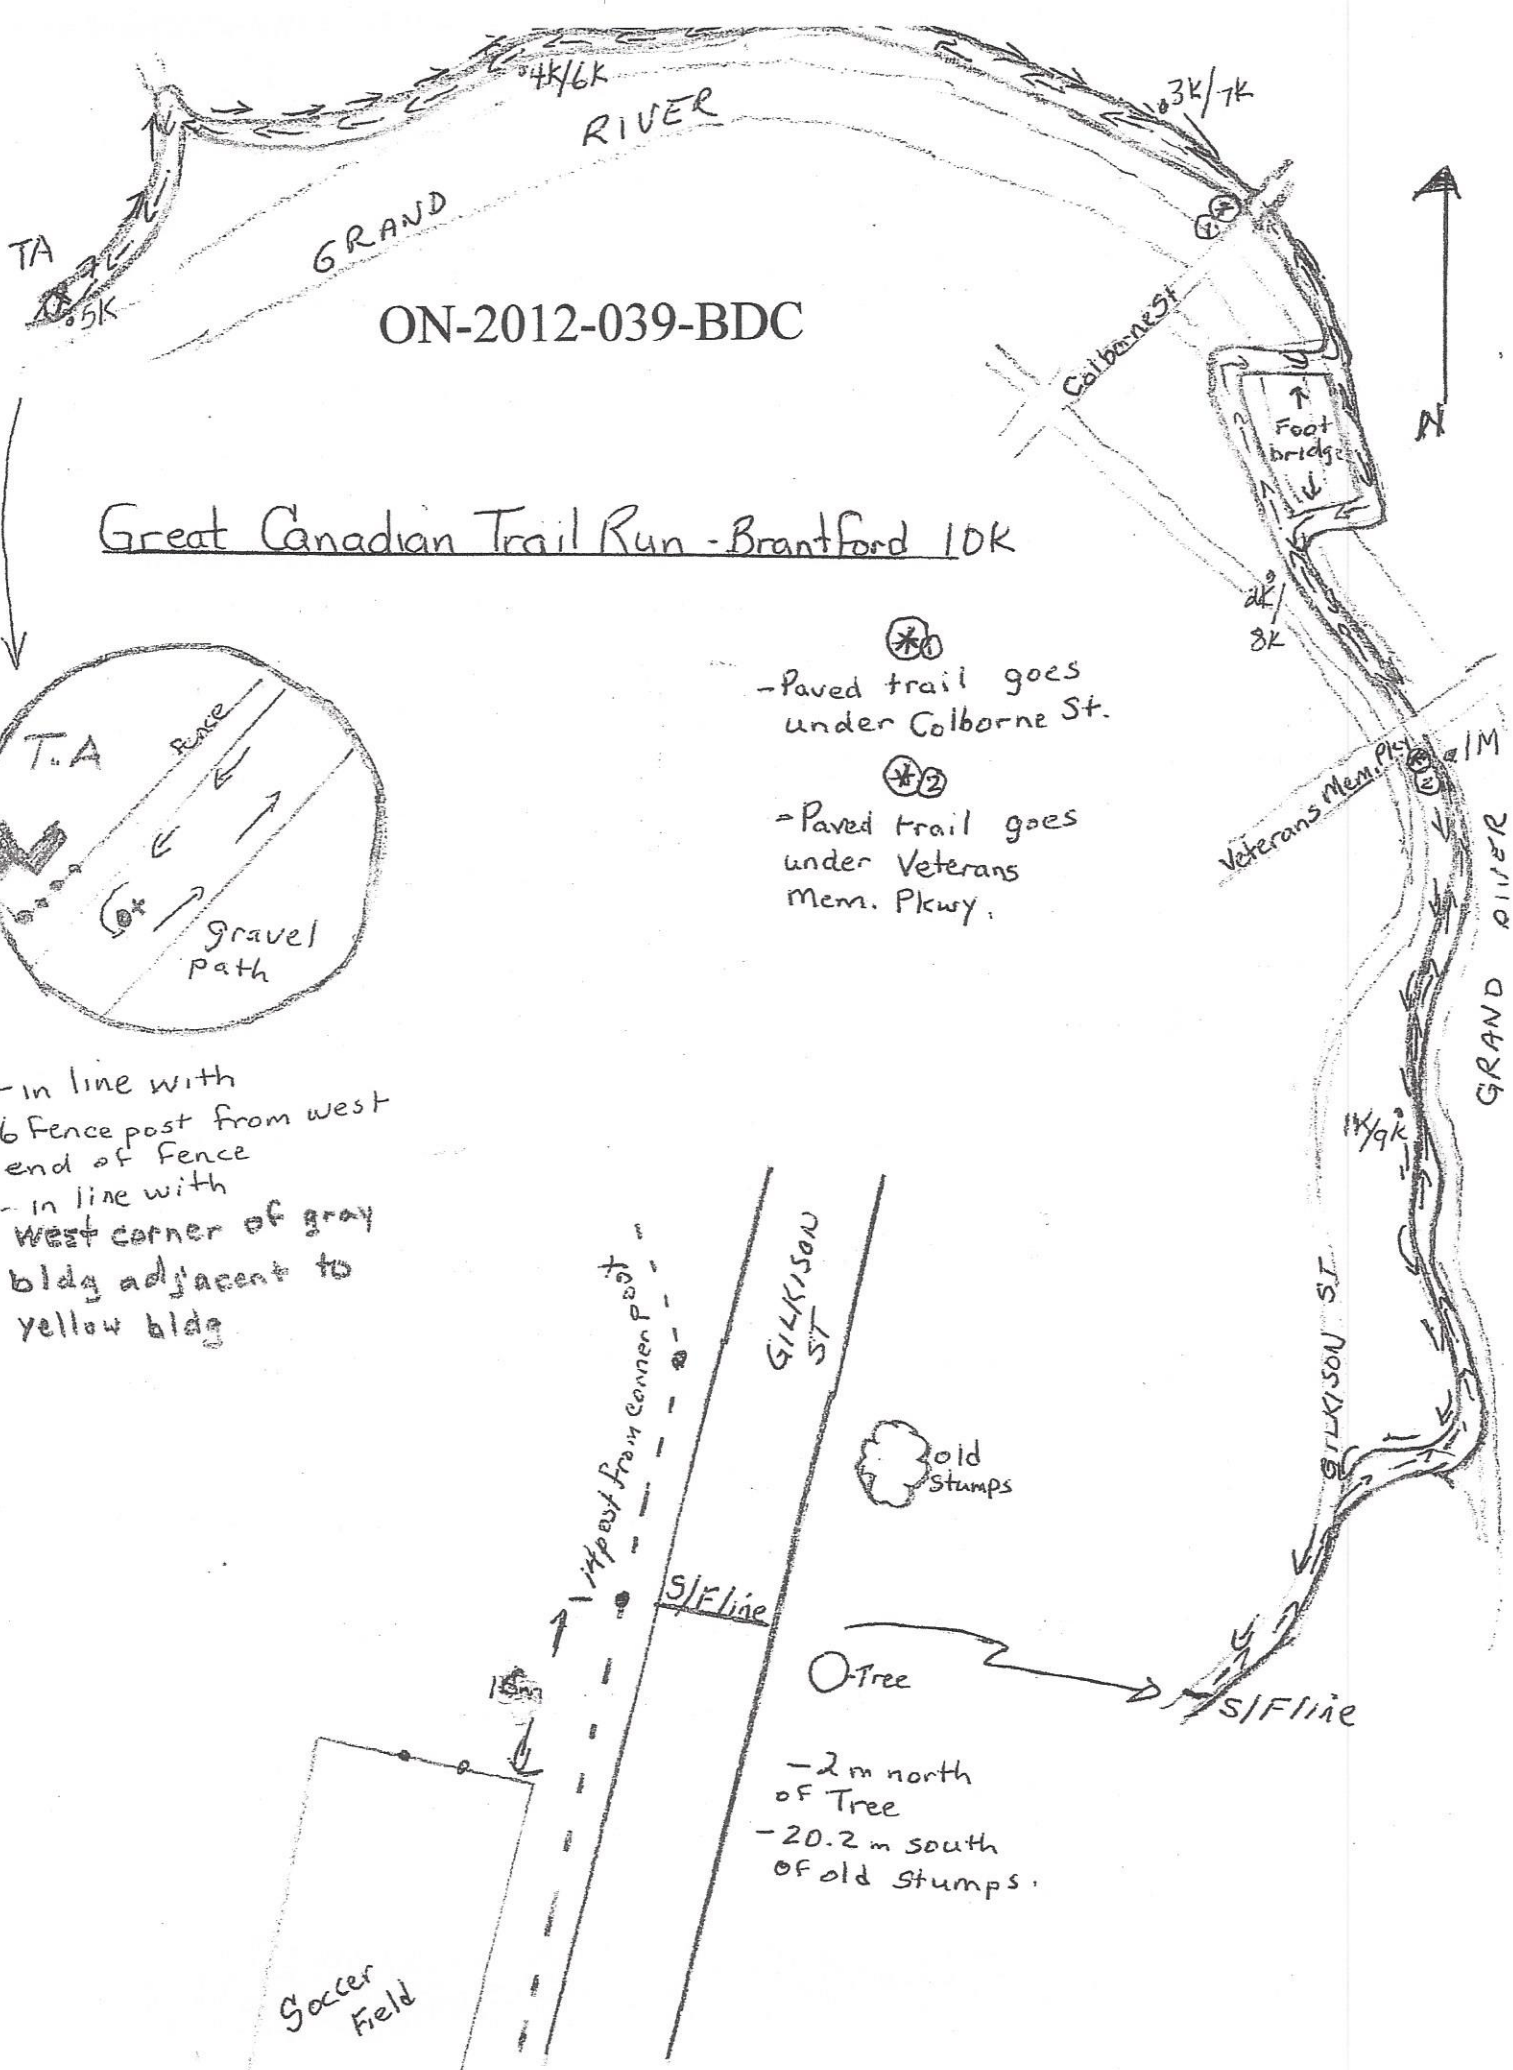 4K/6K
3K/7K
GRAND RIVER
TA
5K
ON-2012-039-BDC
Colborne St
N
Foot
bridge
Great Canadian Trail Run - Brantford 10K
2K/
8K
*1
- Paved trail goes
under Colborne St.
*2
- Paved trail goes
under Veterans
Mem. Pkwy.
1M
*
2
Veterans Mem. Pky
GRAND RIVER
T.A
Fence
gravel
path
- in line with
6 fence post from west
end of fence
- in line with
west corner of gray
bldg adjacent to
yellow bldg
1K/9K
GILKISON ST
GILKISON
ST
14 post from corner post
old
stumps
S/F line
Tree
S/F line
- 2 m north
of Tree
- 20.2 m south
of old stumps.
Soccer
Field